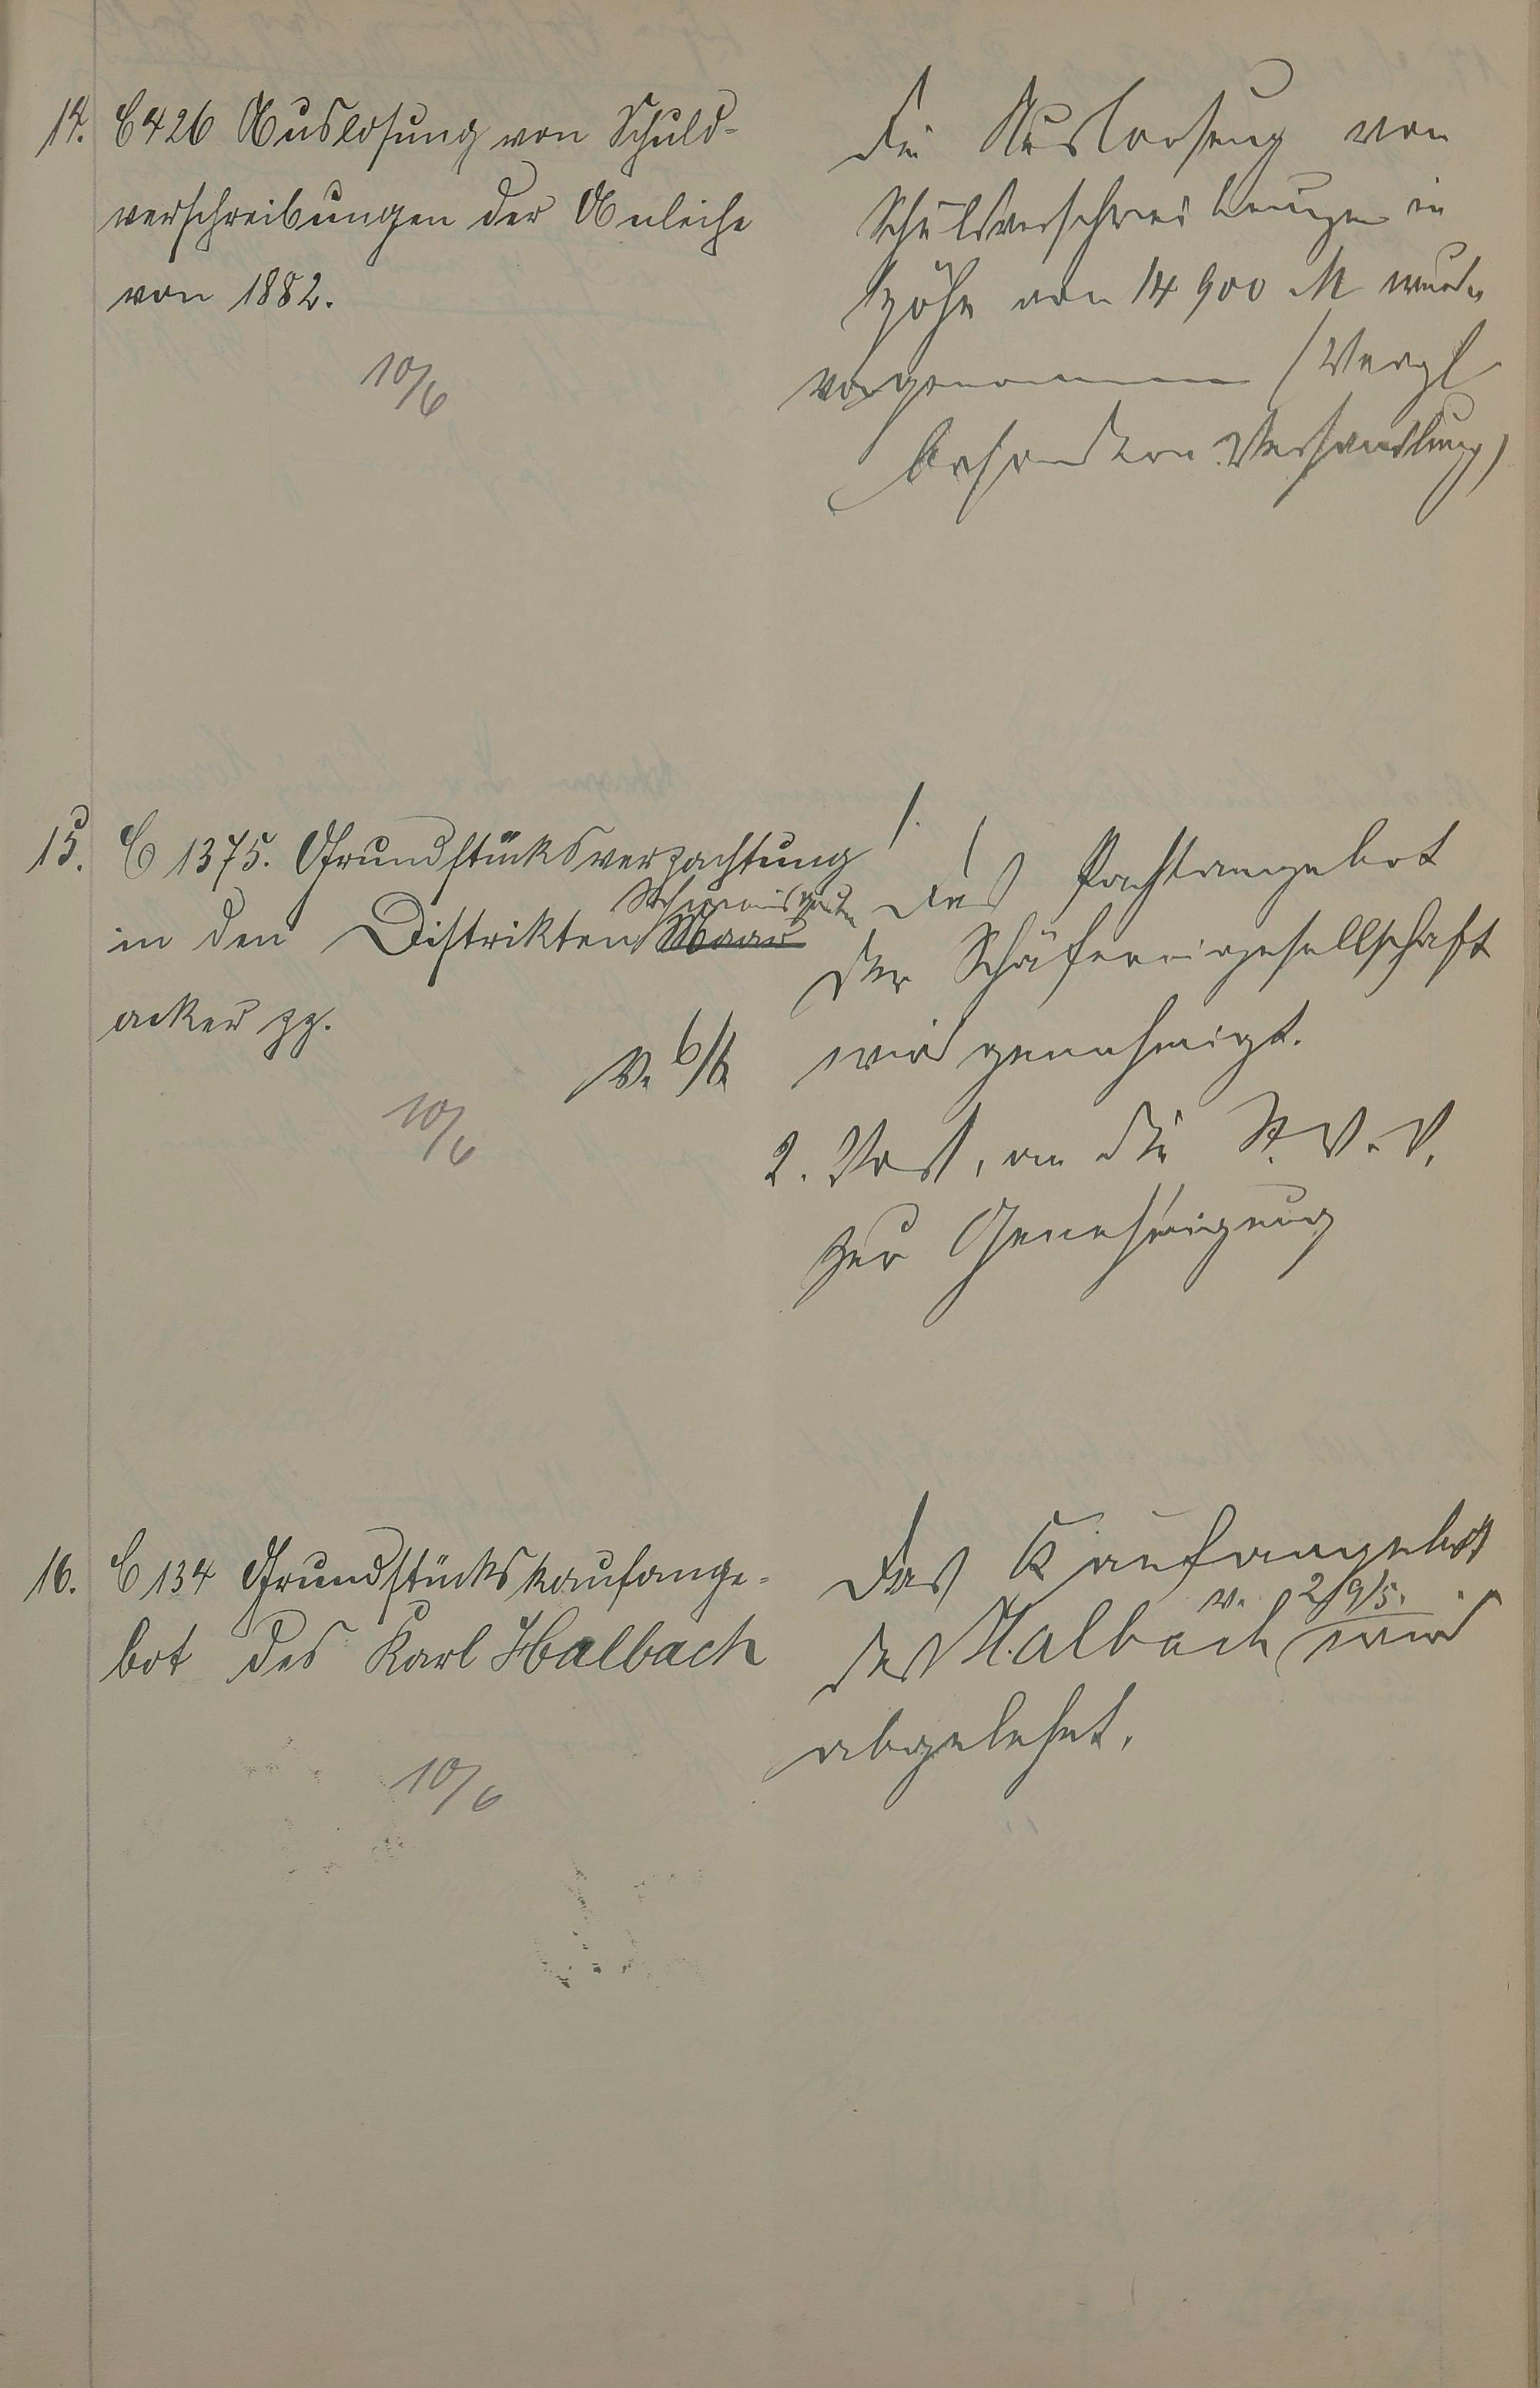 14. C 426 Auslosung von Schuld-
verschreibungen der Anleihe
von 1882.
10/6
Die Ausloosung von
Schuldverschreibungen in
Höhe von 14 900 M wurde
vorgenommen (Vergl
besondere Verhandlung)
15. C 1375. Grundstücksverpachtung
in den Distrikten Maar
acker pp.
V. 6/6.
10/6
1. Das Pachtangebot
der Schäfereigesellschaft
wird genehmigt.
2. Vorst, an die St. V. V.
zur Genehmigung
16. C 134 Grundstückskaufange-
bot des Karl Halbach
10/6
Das Kaufangebot
des Halbach v. 29/5. wird
abgelehnt.